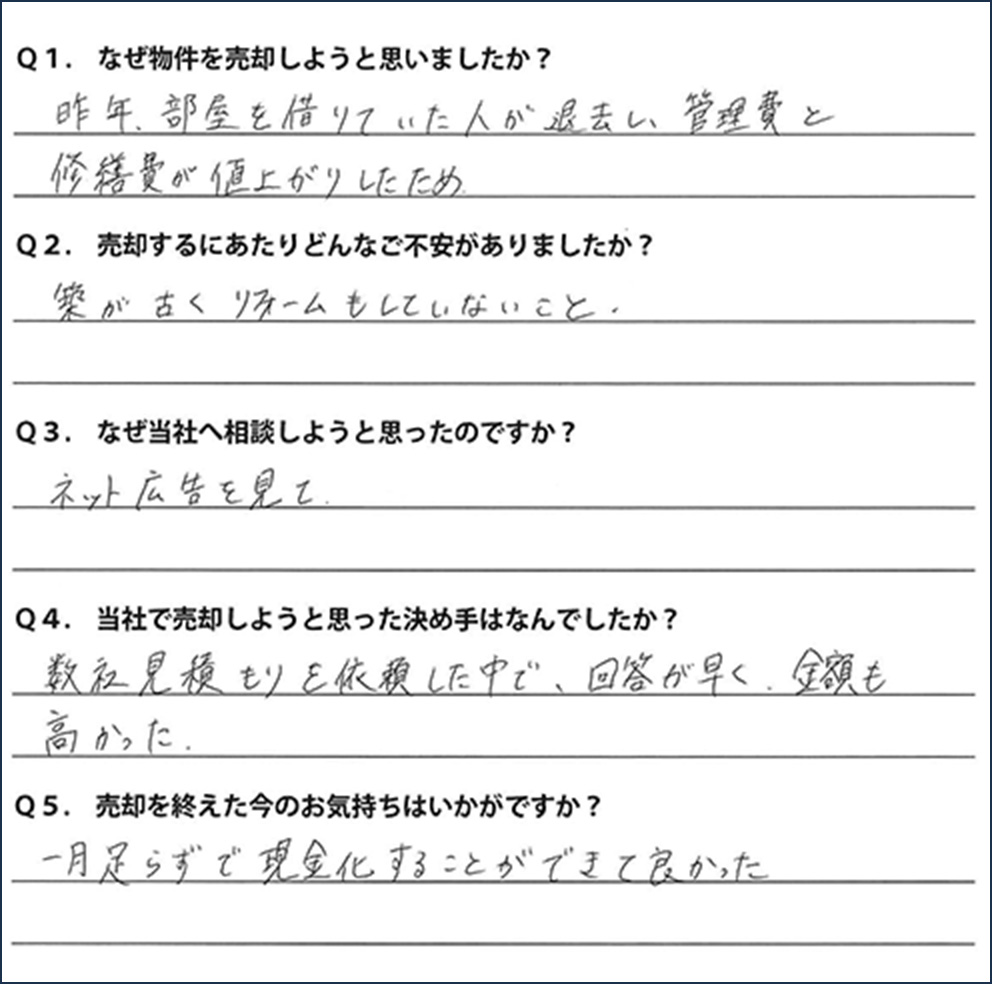 Q1. なぜ物件を売却しようと思いましたか？
昨年、部屋を借りていた人が退去し、管理費と
修繕費が値上がりしたため.
Q2. 売却するにあたりどんなご不安がありましたか？
築が古くリフォームもしていないこと.
Q3. なぜ当社へ相談しようと思ったのですか？
ネット広告を見て.
Q4. 当社で売却しようと思った決め手はなんでしたか？
数社見積もりを依頼した中で、回答が早く、金額も
高かった.
Q5. 売却を終えた今のお気持ちはいかがですか？
一月足らずで現金化することができて良かった